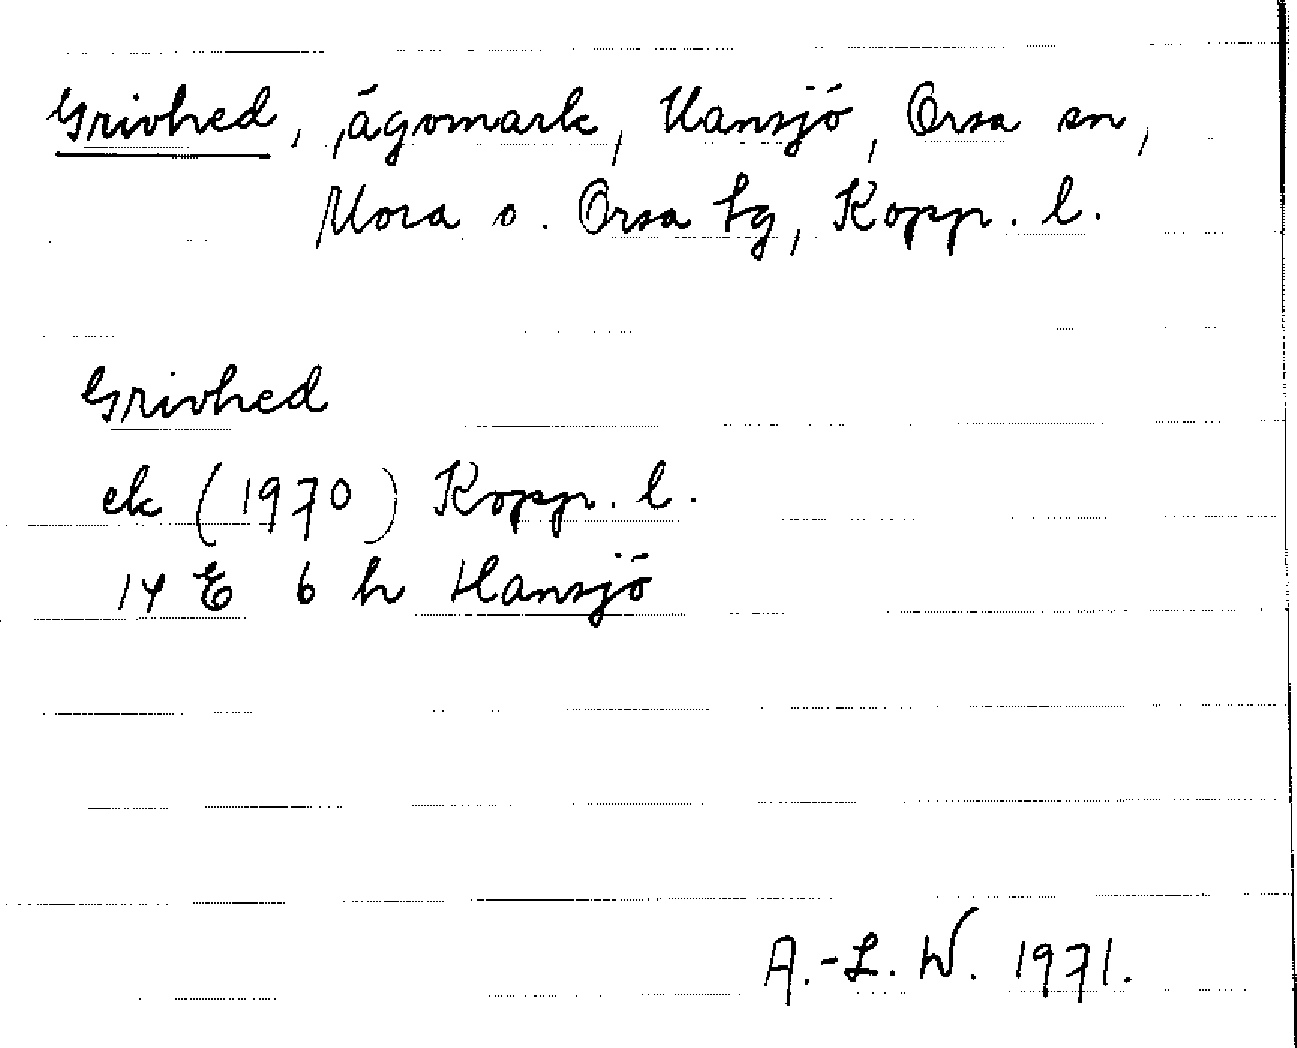 Grivhed, ägomark, Hansjö, Orsa sn,
Mora o. Orsa tg, Kopp. l.
Grivhed
ek (1970) Kopp. l.
14 E 6 h Hansjö
A.-L. W. 1971.